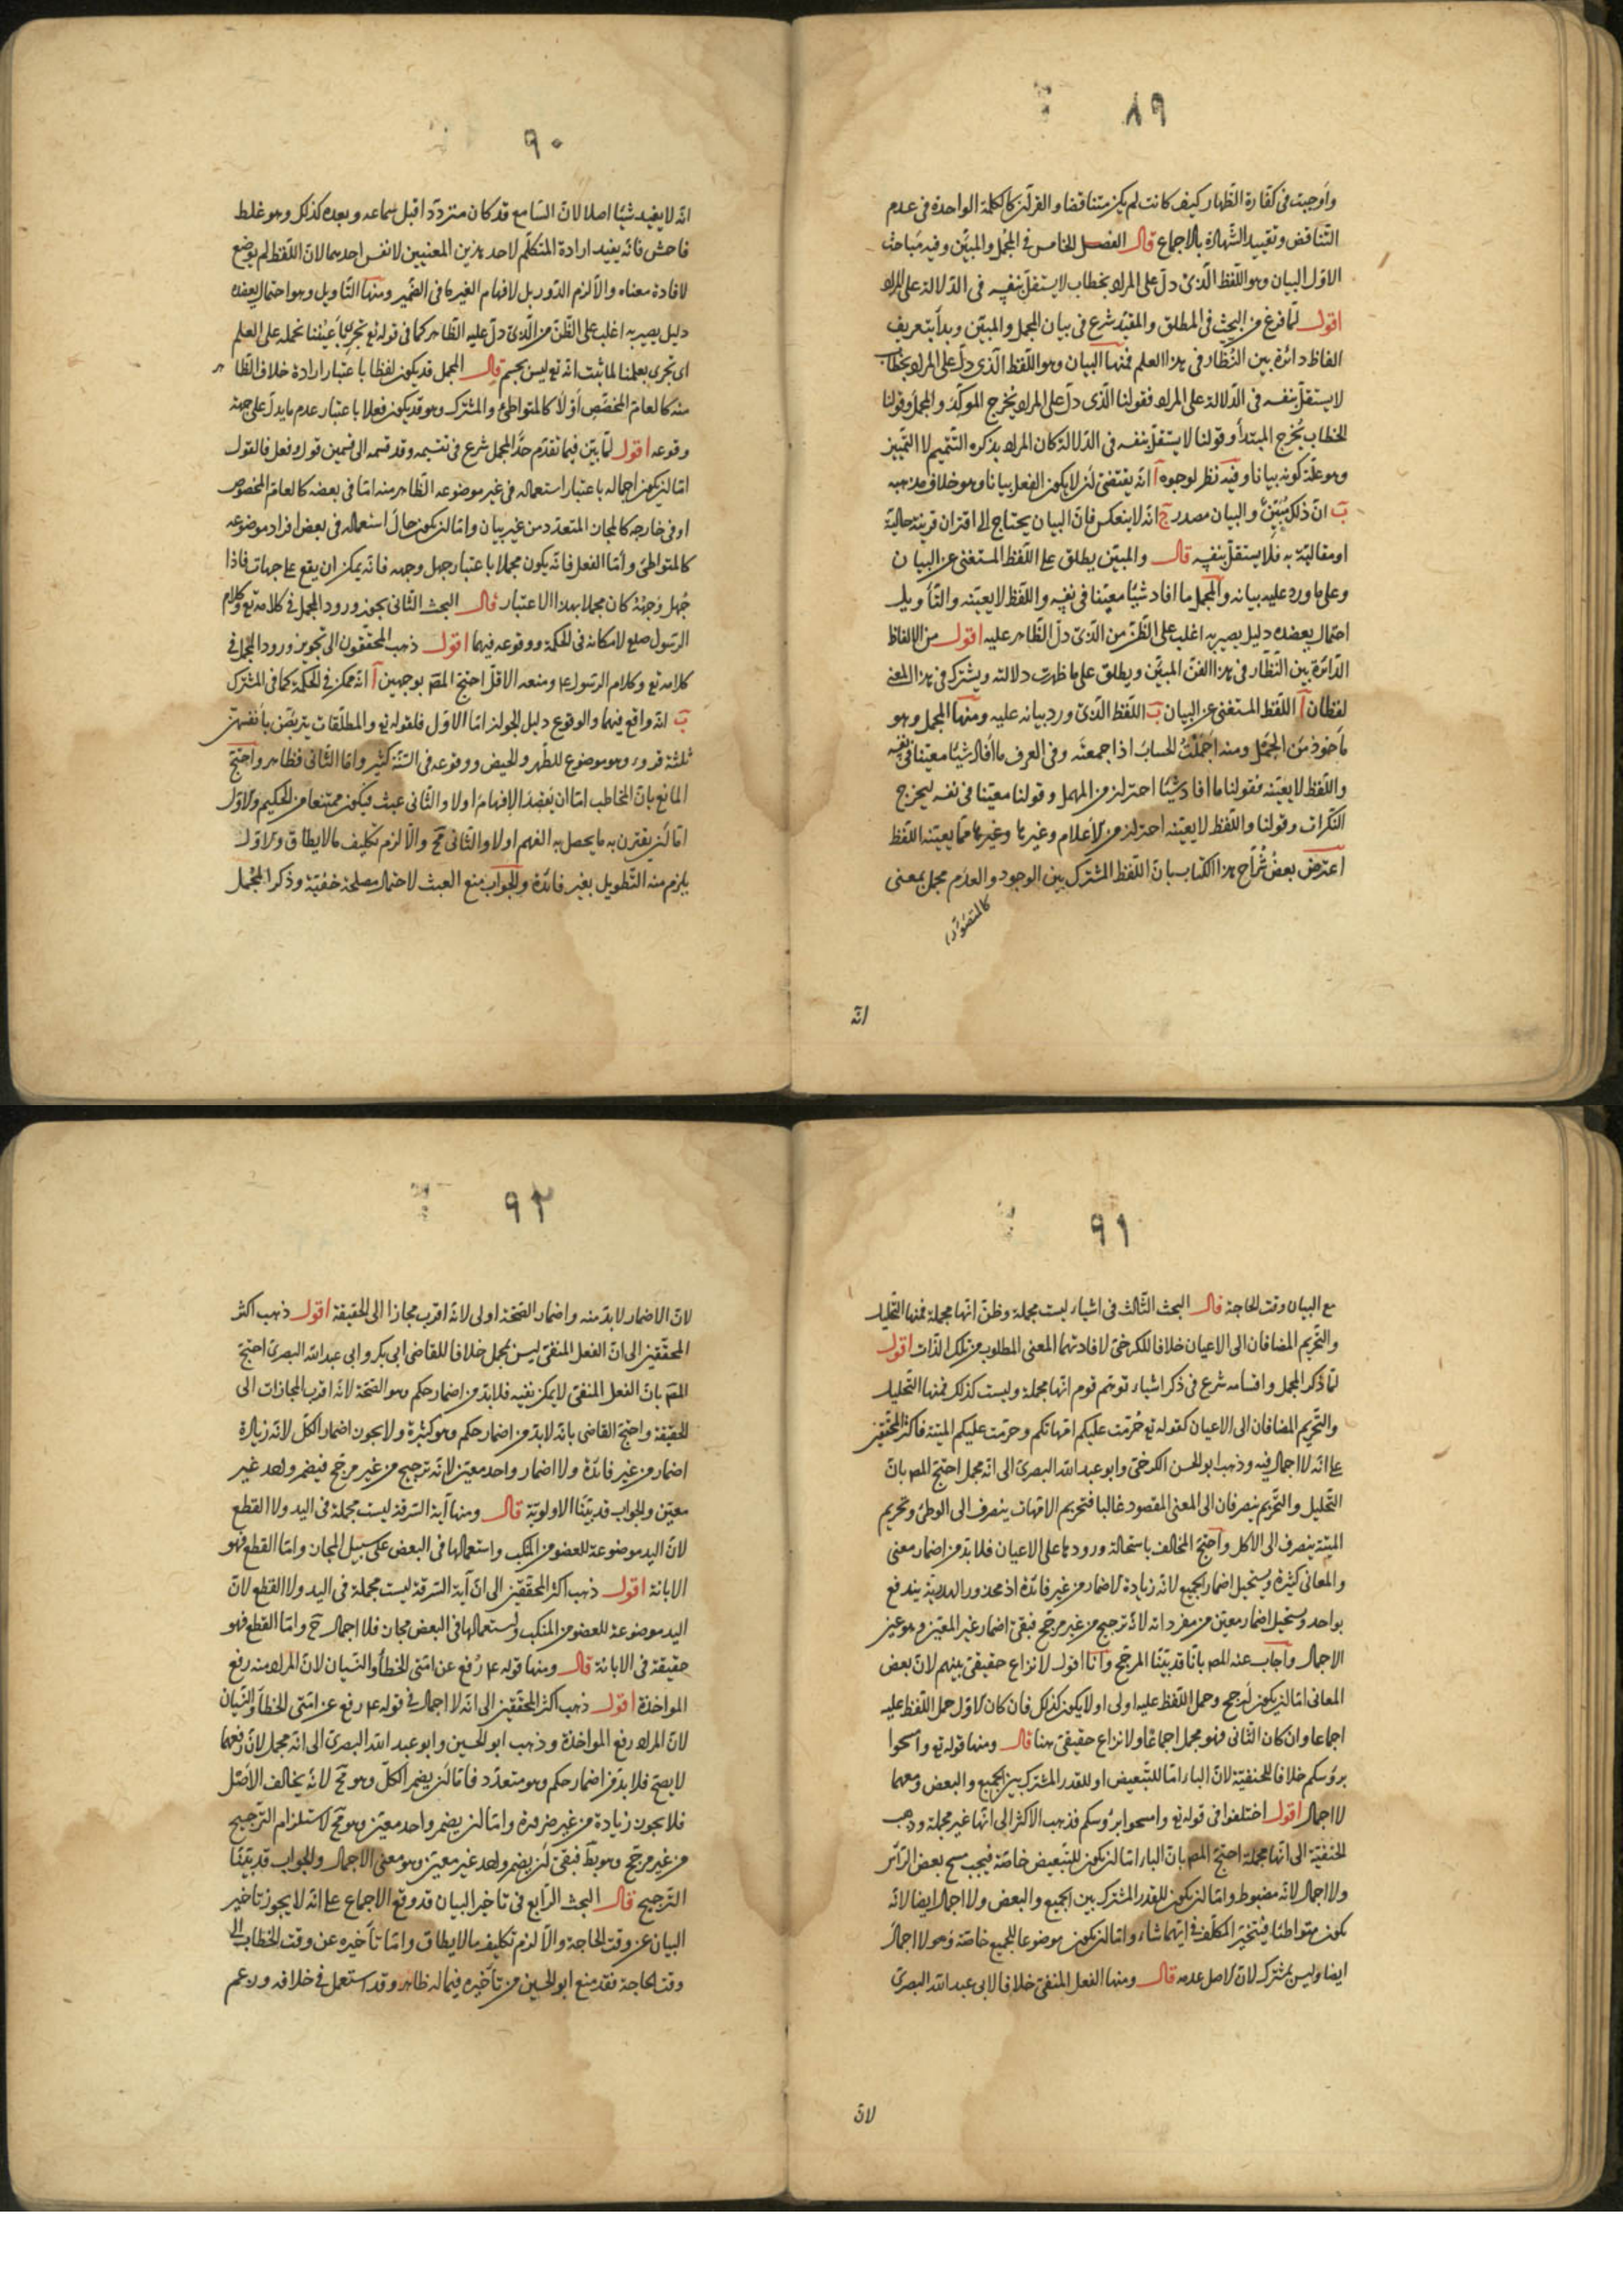 ٨٩
وأوجبت في كفارة الظهار كيف كانت لم يكن متناقضا والقرآن كالكلمة الواحدة في عدم
التناقض وتقييد الشهادة بالاجماع قال الفصل الخامس في المجمل والمبين وفيه مباحث
الاول البيان وهو اللفظ الذي دل على المراد بخطاب لا يستقل بنفسه في الدلالة على المراد
اقول لما فرغ من البحث في المطلق والمقيد شرع في بيان المجمل والمبين وبدأ بتعريف
الفاظ دائرة بين النظار في هذا العلم فمنها البيان وهو اللفظ الذي دل على المراد بخطاب
لا يستقل بنفسه في الدلالة على المراد فقولنا الذي دل على المراد يخرج الموكد والمجمل وقولنا
الخطاب يخرج المبتدأ وقولنا لا يستقل بنفسه في الدلالة كان المراد بذكره التتميم لا التمييز
وهو علة كونه بيانا وفيه نظر لوجوه آ انه يقتضي أن لا يكون الفعل بيانا وهو خلاف مذهبه
ب ان ذلك مبيّن والبيان مصدر ج انه لا ينعكس فإن البيان يحتاج الى اقتران قرينة حالية
او مقالية به فلا يستقل بنفسه قال والمبين يطلق على اللفظ المستغنى عن البيان
وعلى ما ورد عليه بيانه والمجمل ما افاد شيئا معينا في نفسه واللفظ لا يعينه والتأويل
احتمال يعضده دليل يصير به اغلب على الظن من الذي دل الظاهر عليه اقول من الالفاظ
الدائرة بين النظار في هذا الفن المبين ويطلق على ما ظهرت دلالته ويشترك في هذا المعنى
لفظان آ اللفظ المستغنى عن البيان ب اللفظ الذي ورد بيانه عليه ومنها المجمل وهو
مأخوذ من الجمل ومنه أجملت الحساب اذا جمعته وفي العرف ما أفاد شيئا معينا في نفسه
واللفظ لا يعينه فقولنا ما افاد شيئا احتراز من المهمل وقولنا معينا في نفسه ليخرج
النكرات وقولنا واللفظ لا يعينه احتراز من الأعلام وغيرها وغيرها مما يعينه اللفظ
اعترض بعض شراح هذا الكتاب بان اللفظ المشترك بين الوجود والعدم مجمل بمعنى
انه
٩٠
انه لا يفيد شيئا اصلا لان السامع قد كان مترددا قبل سماعه وبعده كذلك وهو غلط
فاحش فانه يفيد ارادة المتكلم لاحد هذين المعنيين لا نفس احدهما لان اللفظ لم يوضع
لافادة معناه والا لزم الدور بل لافهام الغير ما في الضمير ومنها التأويل وهو احتمال يعضده
دليل يصير به اغلب على الظن من الذي دل عليه الظاهر كما في قوله تع تجري بأعيننا نحمله على العلم
اي تجري بعلمنا لما ثبت انه تع ليس بجسم قال المجمل قد يكون لفظا باعتبار ارادة خلاف الظاهر
منه كالعام المخصص أو لا كالمتواطئ والمشترك وقد يكون فعلا باعتبار عدم ما يدل على جهة
وقوعه اقول لما بين فيما تقدم حد المجمل شرع في تقسيمه وقد قسمه الى قسمين قول وفعل فالقول
اما ان يكون اجماله باعتبار استعماله في غير موضوعه الظاهر منه اما في بعضه كالعام المخصوص
او في خارجه كالمجاز المتعدد من غير بيان واما ان يكون حال استعماله في بعض افراد موضوعه
كالمتواطئ وأما الفعل فانه يكون مجملا باعتبار جهل وجهه فانه يمكن ان يقع على جهات فاذا
جهل وجهه كان مجملا بهذا الاعتبار قال البحث الثاني يجوز ورود المجمل في كلامه تع وكلام
الرسول صلع لامكانه في الحكمة ووقوعه فيهما اقول ذهب المحققون الى تجويز ورود المجمل في
كلامه تع وكلام الرسول ع ومنعه الاقل احتج المص بوجهين آ انه ممكن في الحكمة كما في المشترك
ب انه واقع فيهما والوقوع دليل الجواز اما الاول فلقوله تع والمطلقات يتربصن بأنفسهن
ثلثة قروء وهو موضوع للطهر والحيض ووقوعه في السنة كثير واما الثاني فظاهر واحتج
المانع بان المخاطب اما ان يقصد الافهام اولا والثاني عبث فيكون ممتنعا من الحكيم والاول
اما أن يقترن به ما يحصل به الفهم اولا والثاني مح والا لزم تكليف ما لا يطاق والاول
يلزم منه التطويل بغير فائدة والجواب منع العبث لاحتمال مصلحة خفية وذكر المجمل
٩١
مع البيان وقت الحاجة قال البحث الثالث في اشياء ليست مجملة وظن انها مجملة فمنها التحليل
والتحريم المضافان الى الاعيان خلافا للكرخي لافادتهما المعنى المطلوب من تلك الذات اقول
لما ذكر المجمل واقسامه شرع في ذكر اشياء توهم قوم انها مجملة وليست كذلك فمنها التحليل
والتحريم المضافان الى الاعيان كقوله تع حرمت عليكم امهاتكم وحرمت عليكم الميتة فاكثر المحققين
على انه لا اجمال فيه وذهب ابو الحسن الكرخي وابو عبد الله البصري الى انه مجمل احتج المص بان
التحليل والتحريم ينصرفان الى المعنى المقصود غالبا فتحريم الامهات ينصرف الى الوطئ وتحريم
الميتة ينصرف الى الأكل واحتج المخالف باستحالة ورودها على الاعيان فلا بد من اضمار معنى
والمعاني كثيرة ويستحيل اضمار الجميع لانه زيادة لاضمار من غير فائدة اذ محذور الهدرية يندفع
بواحد ويستحيل اضمار معين من مفرداته لانه ترجيح من غير مرجح فبقي اضمار غير المعين وهو عين
الاجمال واجاب عنه المص بانا قد بينا المرجح وأنا اقول لا نزاع حقيقي بينهم لان بعض
المعاني اما ان يكون أرجح وحمل اللفظ عليه اولى او لا يكون كذلك فان كان الاول حمل اللفظ عليه
اجماعا وان كان الثاني فهو مجمل اجماعا ولا نزاع حقيقي هنا قال ومنها قوله تع وامسحوا
برؤسكم خلافا للحنفية لان الباء اما للتبعيض او للقدر المشترك بين الجميع والبعض ومعهما
لا اجمال اقول اختلفوا في قوله تع وامسحوا برؤسكم فذهب الاكثر الى انها غير مجملة وذهب
الحنفية الى انها مجملة احتج المص بان الباء اما ان يكون للتبعيض خاصة فيجب مسح بعض الرأس
ولا اجمال لانه مضبوط واما ان يكون للقدر المشترك بين الجميع والبعض ولا اجمال ايضا لانه
يكون متواطئا فيتخير المكلف في ايهما شاء واما ان يكون موضوعا للجميع خاصة وهو لا اجمال
ايضا وليس بمشترك لان الاصل عدمه قال ومنها الفعل المنفي خلافا لابي عبد الله البصري
لان
٩٢
لان الاضمار لا بد منه واضمار الصحة اولى لانه اقرب مجازا الى الحقيقة اقول ذهب اكثر
المحققين الى ان الفعل المنفي ليس بمجمل خلافا للقاضي ابي بكر وابي عبد الله البصري احتج
المص بان الفعل المنفي لا يمكن نفيه فلا بد من اضمار حكم وهو الصحة لانه اقرب المجازات الى
الحقيقة واحتج القاضي بانه لا بد من اضمار حكم وهو كثيرة ولا يجوز اضمار الكل لانه زيادة
اضمار من غير فائدة ولا اضمار واحد معين لانه ترجيح من غير مرجح فيضمر واحد غير
معين والجواب قد بينا الاولوية قال ومنها آية السرقة ليست مجملة في اليد ولا القطع
لان اليد موضوعة للعضو من المنكب واستعمالها في البعض على سبيل المجاز واما القطع فهو
الابانة اقول ذهب اكثر المحققين الى ان آية السرقة ليست مجملة في اليد ولا القطع لان
اليد موضوعة للعضو من المنكب واستعمالها في البعض مجاز فلا اجمال ح واما القطع فهو
حقيقة في الابانة قال ومنها قوله ع رفع عن امتي الخطأ والنسيان لان المراد منه رفع
المواخذة اقول ذهب اكثر المحققين الى انه لا اجمال في قوله ع رفع عن امتي الخطأ والنسيان
لان المراد رفع المواخذة وذهب ابو الحسين وابو عبد الله البصري الى انه مجمل لان رفعهما
لا يصح فلا بد من اضمار حكم وهو متعدد فاما أن يضمر الكل وهو مح لانه يخالف الأصل
فلا يجوز زيادة من غير ضرورة واما ان يضمر واحد معين وهو مح لاستلزام الترجيح
من غير مرجح وهو بط فبقي أن يضمر واحد غير معين وهو معنى الاجمال والجواب قد بينا
الترجيح قال البحث الرابع في تاخير البيان قد وقع الاجماع على انه لا يجوز تاخير
البيان عن وقت الحاجة والا لزم تكليف ما لا يطاق واما تأخيره عن وقت الخطاب الى
وقت الحاجة فقد منع ابو الحسين من تأخيره فيما له ظاهر وقد استعمل في خلافه وزعم